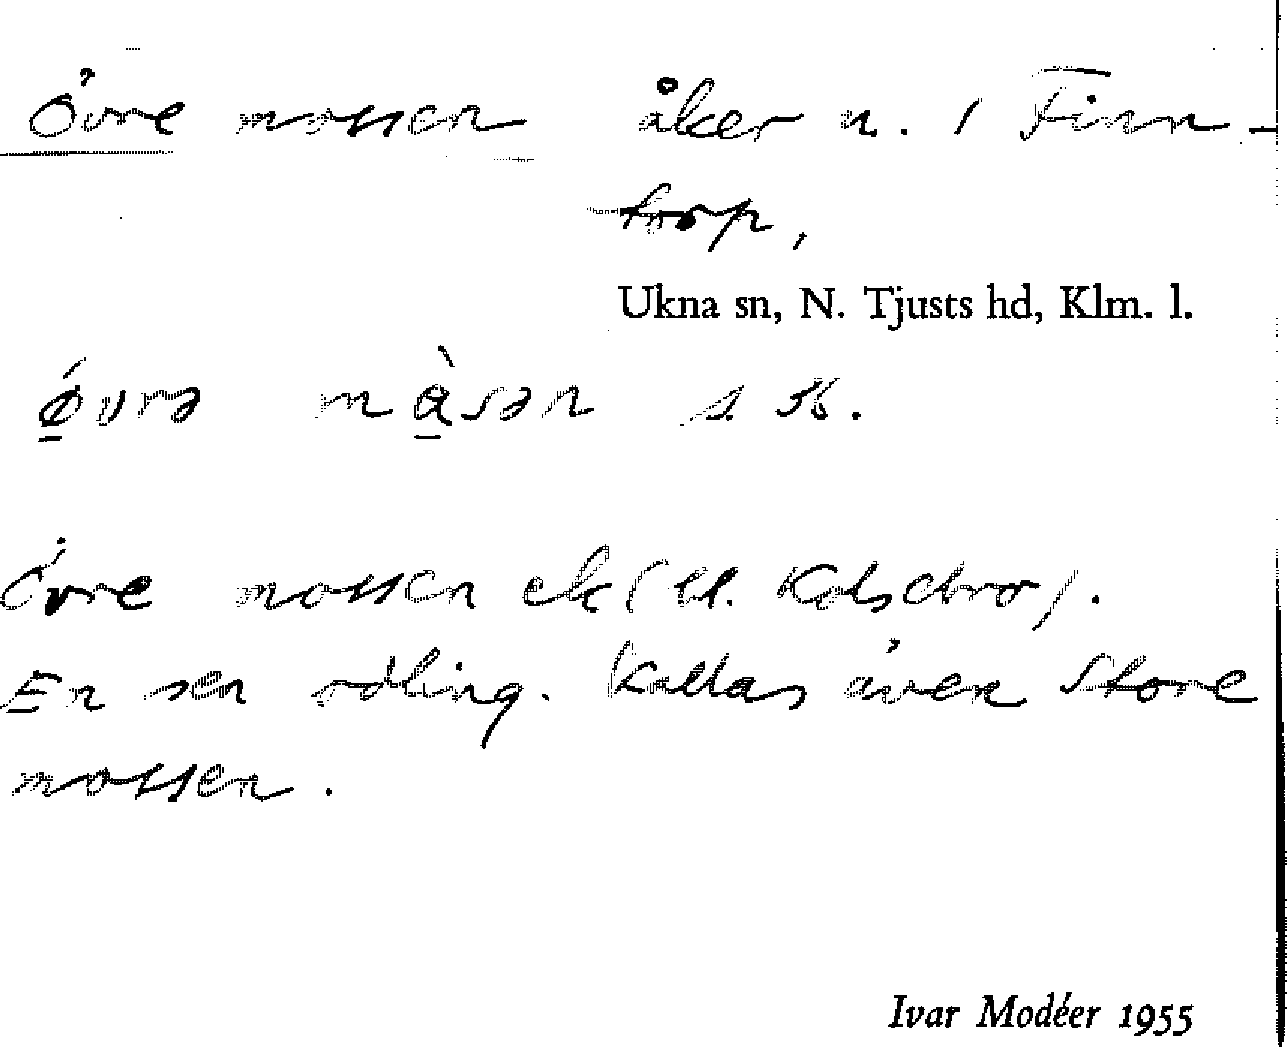 Övre mossen åker n. 1 Finn-
torp,
Ukna sn, N. Tjusts hd, Klm. l.
ǿvrə màsən s. st.
Övre mossen ek (bl. Kolsebro).
En sen odling. Kallas även Store
mossen.
Ivar Modéer 1955